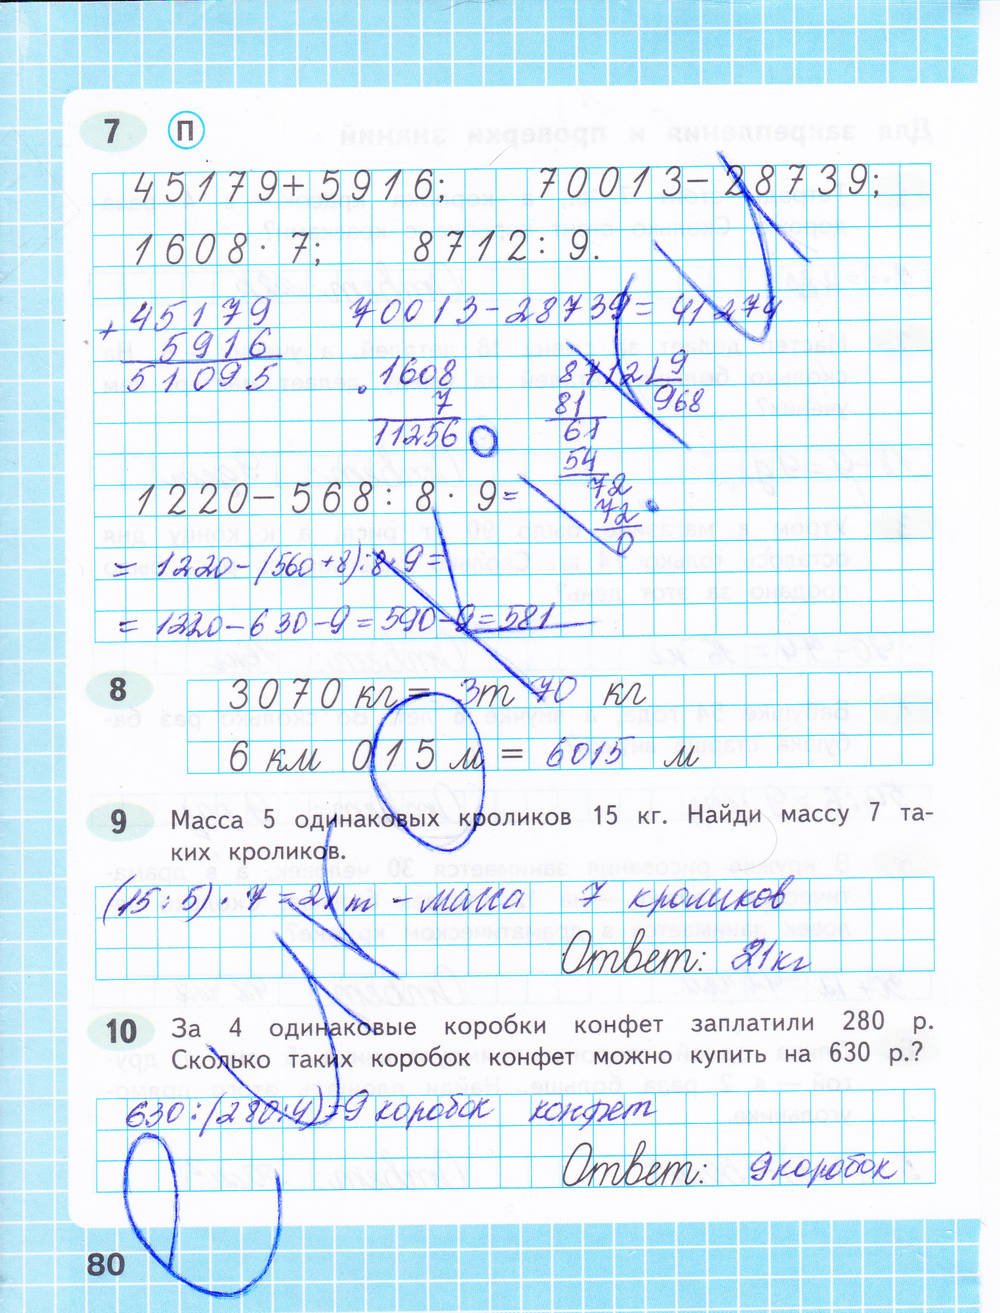 7 П
45179+5916; 70013-28739;
1608·7; 8712:9.
+45179 70013-28739=41274
5916
51095
1608 8712 9
7 81 968
11256 61
54
72
1220-568:8·9= 72
0
= 1220-(560+8):8·9=
= 1220-630-9=590-9=581
8 3070 кг = 3т 70 кг
6 км 015 м = 6015 м
9 Масса 5 одинаковых кроликов 15 кг. Найди массу 7 та-
ких кроликов.
(15:5)·7=21 т - масса 7 кроликов
Ответ: 21кг
10 За 4 одинаковые коробки конфет заплатили 280 р.
Сколько таких коробок конфет можно купить на 630 р.?
630:(280:4)=9 коробок конфет
Ответ: 9 коробок
80